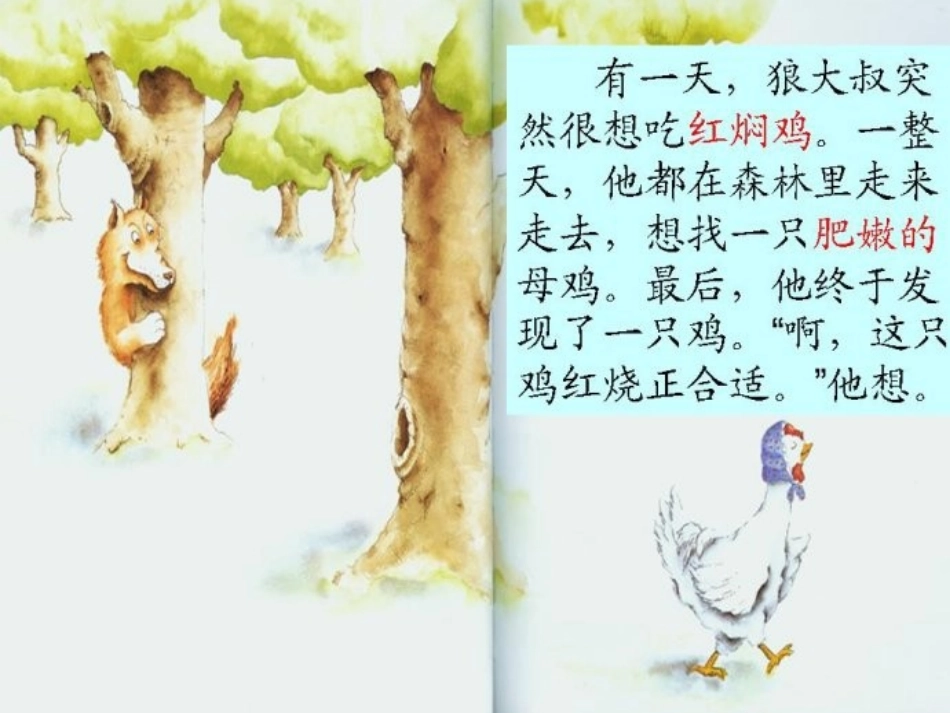 有一天，狼大叔突
然很想吃红焖鸡。一整
天，他都在森林里走来
走去，想找一只肥嫩的
母鸡。最后，他终于发
现了一只鸡。“啊，这只
鸡红烧正合适。”他想。